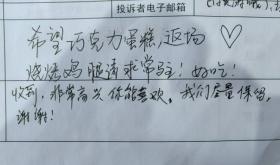 投诉者电子邮箱
希望巧克力蛋糕，返场♡
烧烤鸡腿请求常驻！好吃！
收到，非常高兴你能喜欢，我们尽量保留，
谢谢！